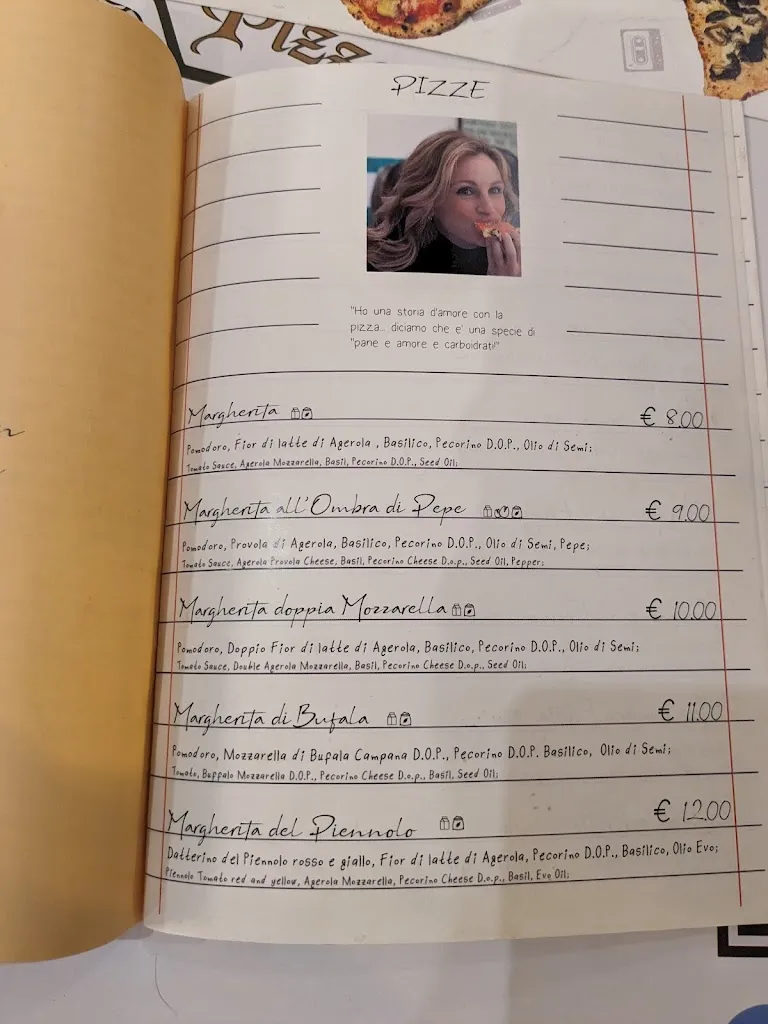 Pizz
PIZZE
"Ho una storia d'amore con la
pizza... diciamo che e' una specie di
"pane e amore e carboidrati!"
Margherita € 8.00
Pomodoro, Fior di latte di Agerola , Basilico, Pecorino D.O.P., Olio di Semi;
Tomato Sauce, Agerola Mozzarella, Basil, Pecorino D.O.P., Seed Oil;
Margherita all'Ombra di Pepe € 9.00
Pomodoro, Provola di Agerola, Basilico, Pecorino D.O.P., Olio di Semi, Pepe;
Tomato Sauce, Agerola Provola Cheese, Basil, Pecorino Cheese D.o.p., Seed Oil, Pepper;
Margherita doppia Mozzarella € 10.00
Pomodoro, Doppio Fior di latte di Agerola, Basilico, Pecorino D.O.P., Olio di Semi;
Tomato Sauce, Double Agerola Mozzarella, Basil, Pecorino Cheese D.o.p., Seed Oil;
Margherita di Bufala € 11.00
Pomodoro, Mozzarella di Bufala Campana D.O.P., Pecorino D.O.P. Basilico, Olio di Semi;
Tomato, Buffalo Mozzarella D.O.P., Pecorino Cheese D.o.p., Basil, Seed Oil;
Margherita del Piennolo € 12.00
Datterino del Piennolo rosso e giallo, Fior di latte di Agerola, Pecorino D.O.P., Basilico, Olio Evo;
Piennolo Tomato red and yellow, Agerola Mozzarella, Pecorino Cheese D.o.p., Basil, Evo Oil;